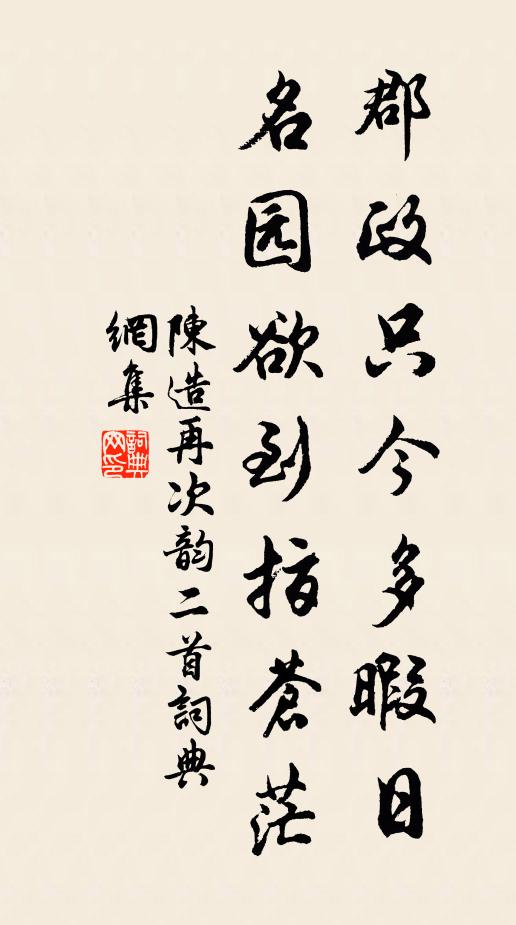 郡政只今多暇日
名园欲到指蒼茫
陳造再次韵二首詞典
網集
詞典
网印